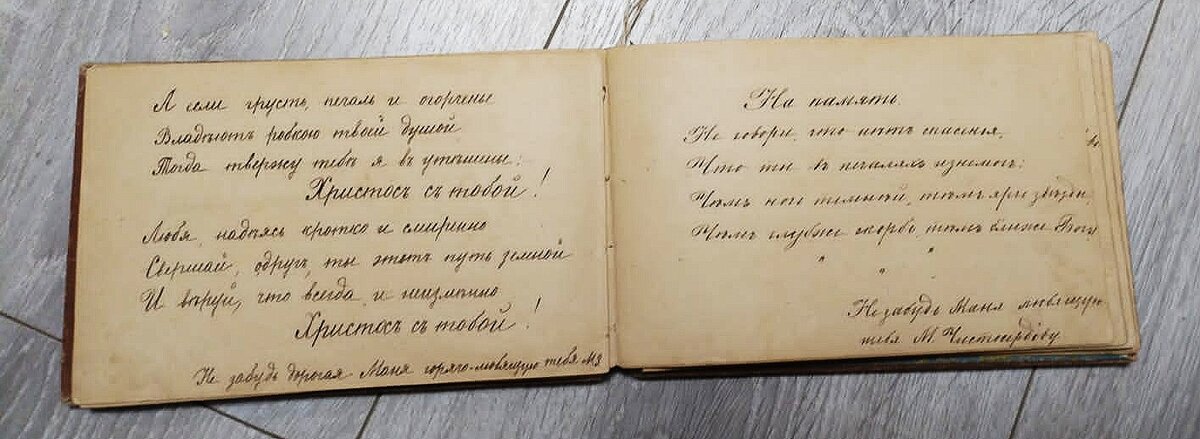 А если грусть, печаль и огорченье
Владѣютъ робкою твоей душой
Тогда твержу тебѣ я въ утѣшенье:
Христосъ съ тобой!
Любя, надѣясь кротко и смиренно
Свершай, о другъ, ты этотъ путь земной
И вѣруй, что всегда и неизмѣнно
Христосъ съ тобой!
Не забудь дорогая Маня горячо-любящую тебя МЗ
На память.
Не говори, что нѣтъ спасенья,
Что ты въ печаляхъ изнемогъ:
Чѣмъ ночь темнѣй, тѣмъ ярче звѣзды,
Чѣмъ глубже скорбь, тѣмъ ближе Богъ
Не забудь Маня любящую
тебя М.